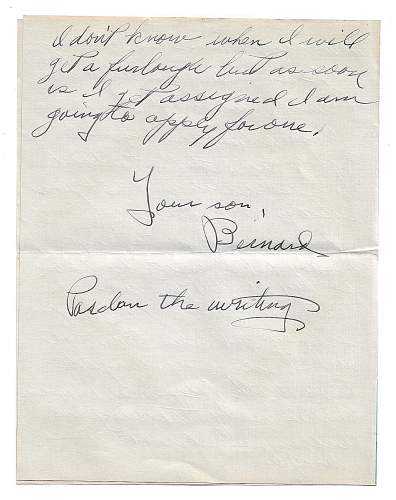 I don't know when I will
get a furlough but as soon
as I get assigned I am
going to apply for one.
Your son,
Bernard
Pardon the writing